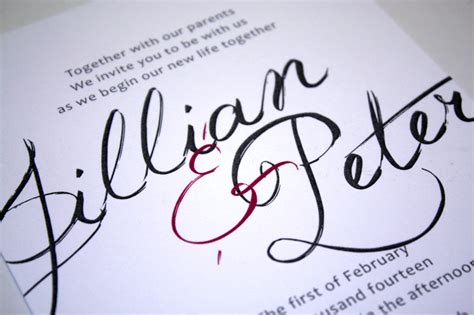 Together with our parents
We invite you to be with us
as we begin our new life together
Jillian
&
Peter
The first of February
thousand fourteen
in the afternoon